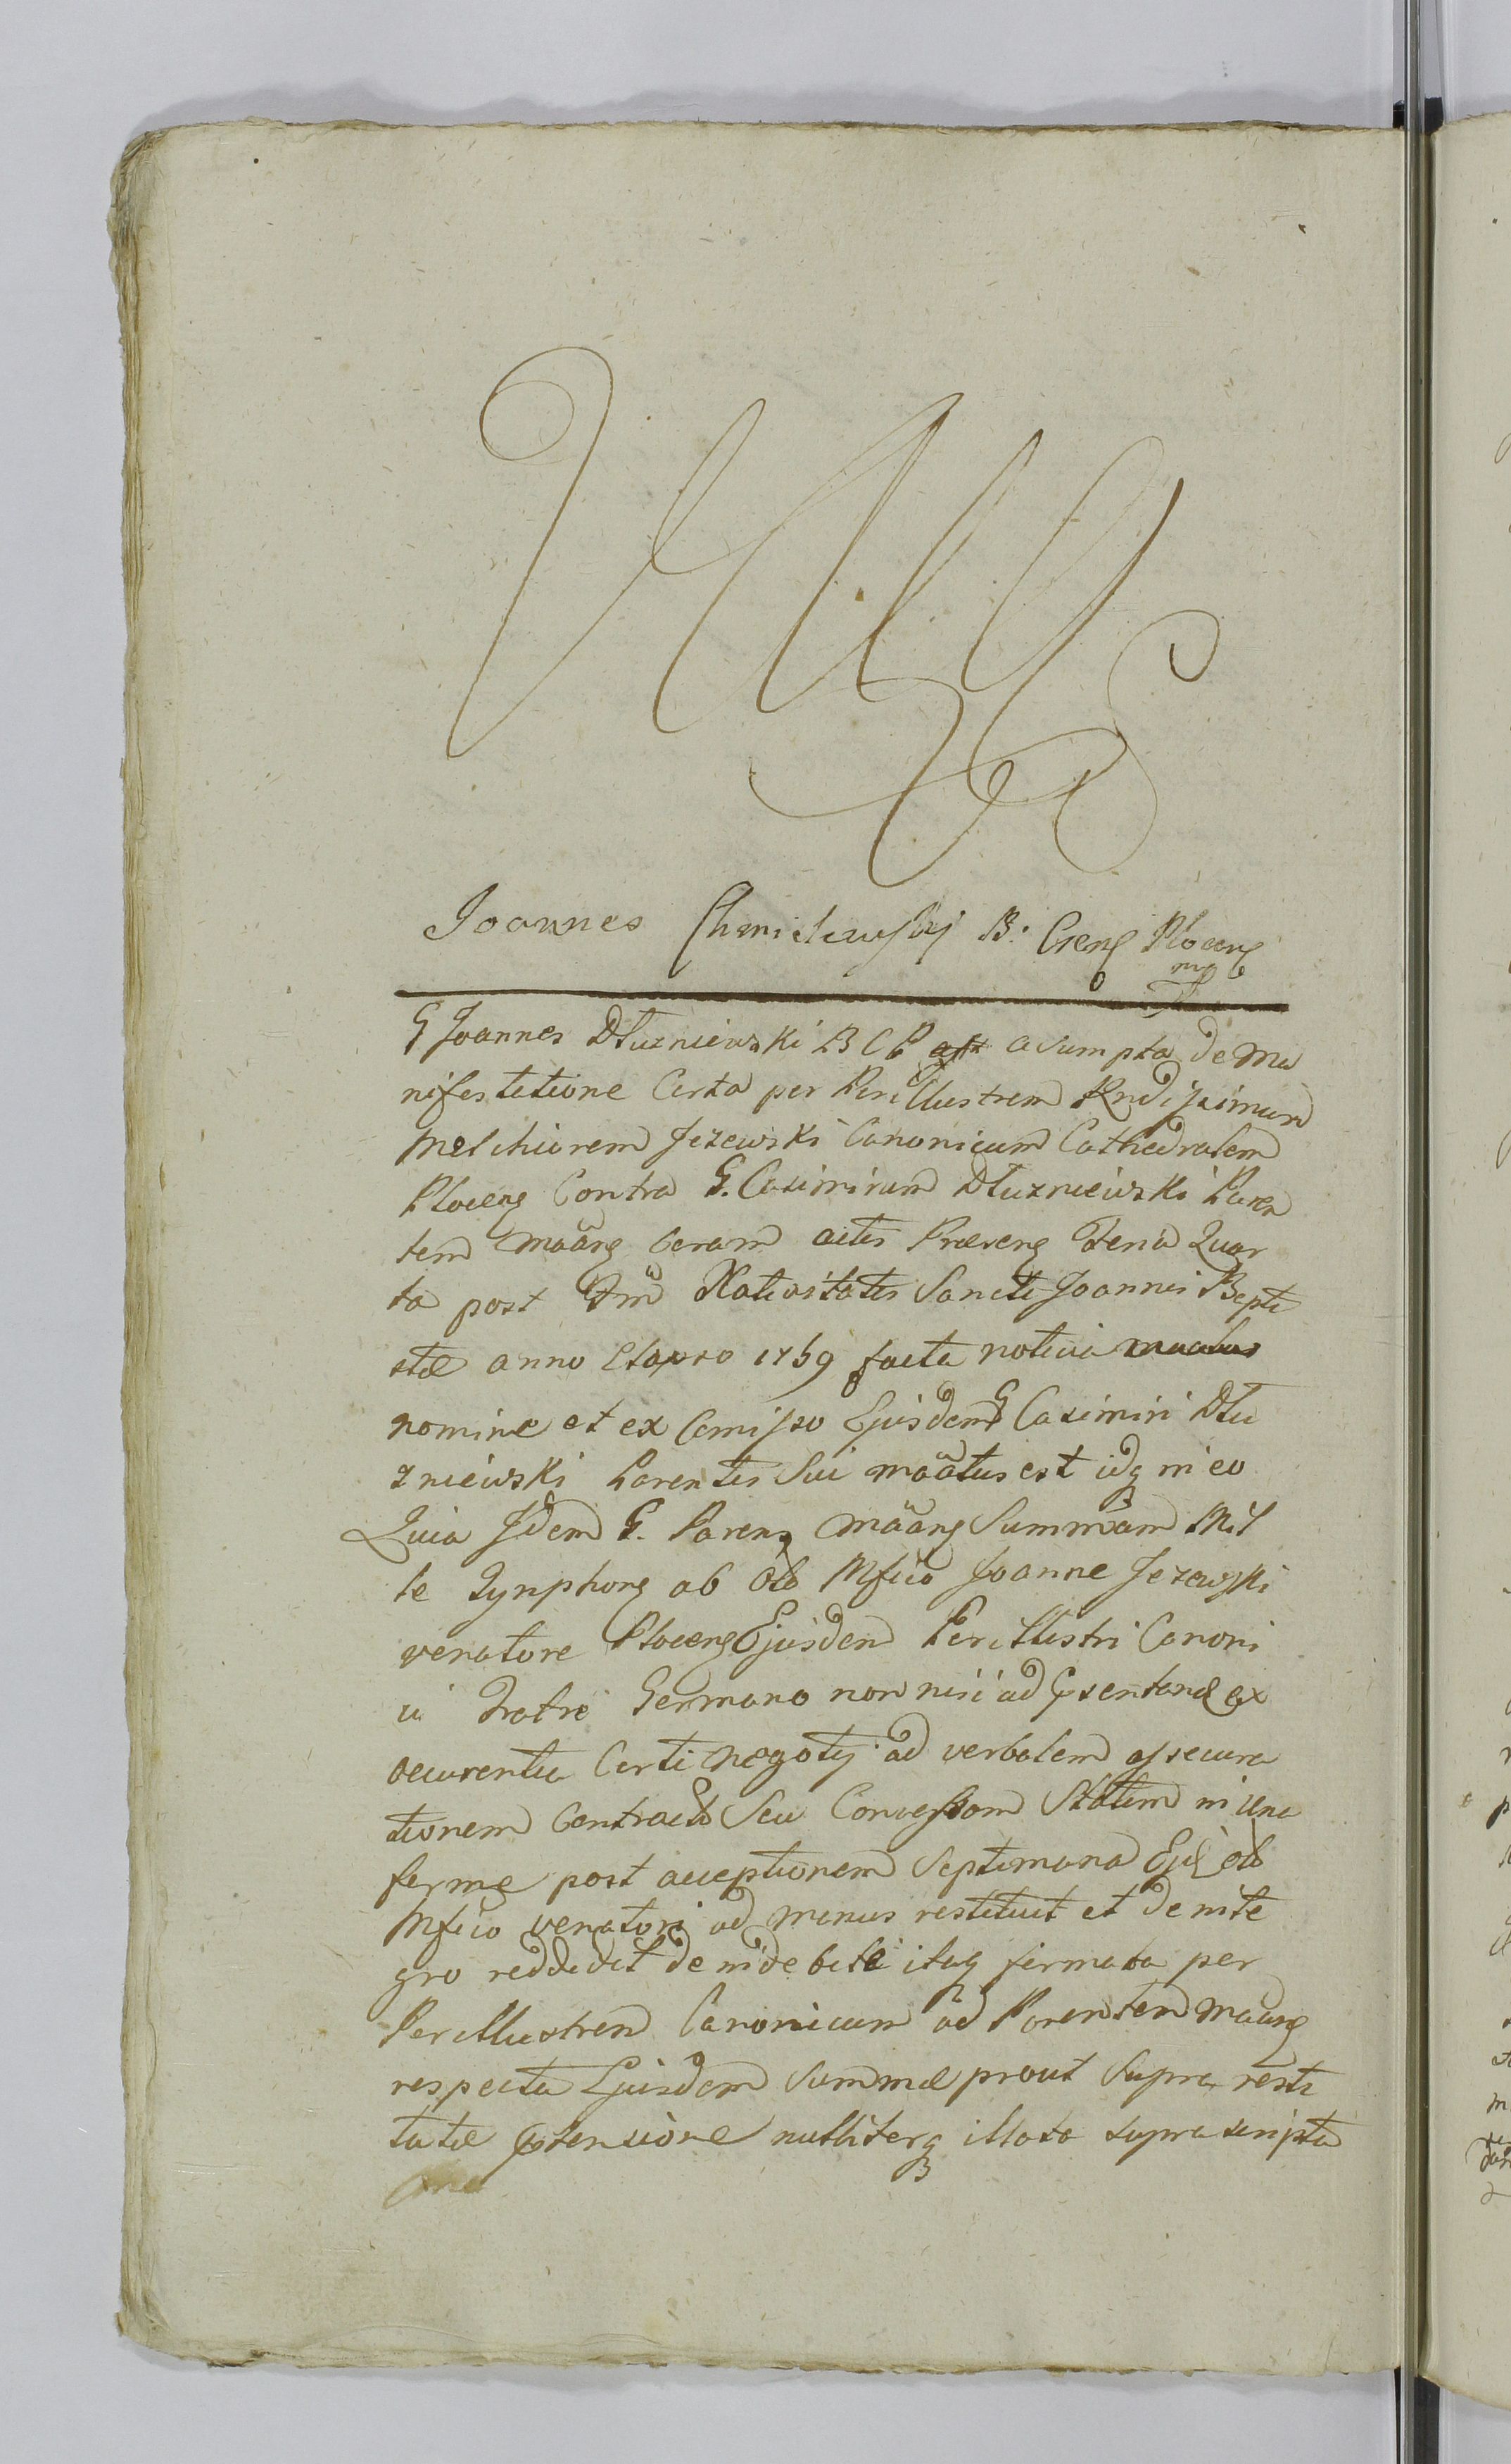 Joannes Chamielewskj B: Cieng Plocens
mp
G Joannes Dłuzniewski B C P asumpta de Ma
nifestetione Certa per Perillustrem Rndissimum
Melchiorem Jezewski Canonicum Cathedralem
Ploceng Contra G. Casimirum Dłuzniewski Paren
tem maang Coram actis Præseng Feria Quar
ta post Nativitatis Sancti Joannis Bapti
stæ anno Elapso 1769 facta noticia
nomine et ex Comisso Ejusdem G Casimiri Dłu
zniewski Parentis Sui maatus est idq in eo
Quia Idem G. Pareng maang Summam Mil
le Tynphong ab Olo Mfico Joanne Jezewski
venatore Ploceng Ejusdem Perillustri Canoni
ci Fratre Germano non nisi ad ex
ocurentia Certi Negotij ad verbalem assecura
tionem Contractæ Seu Concessam Statim in una
ferme post acceptionem Septimana Ejq olo
Mfico venatori ad manus restituit et de inte
gro reddidit de indebite itaq firmata per
Perillustrem Canonicum ad Parentem maang
respectu Ejusdem Summæ prout Supra resti
tutæ ptensione nulliterq illata supra scripta